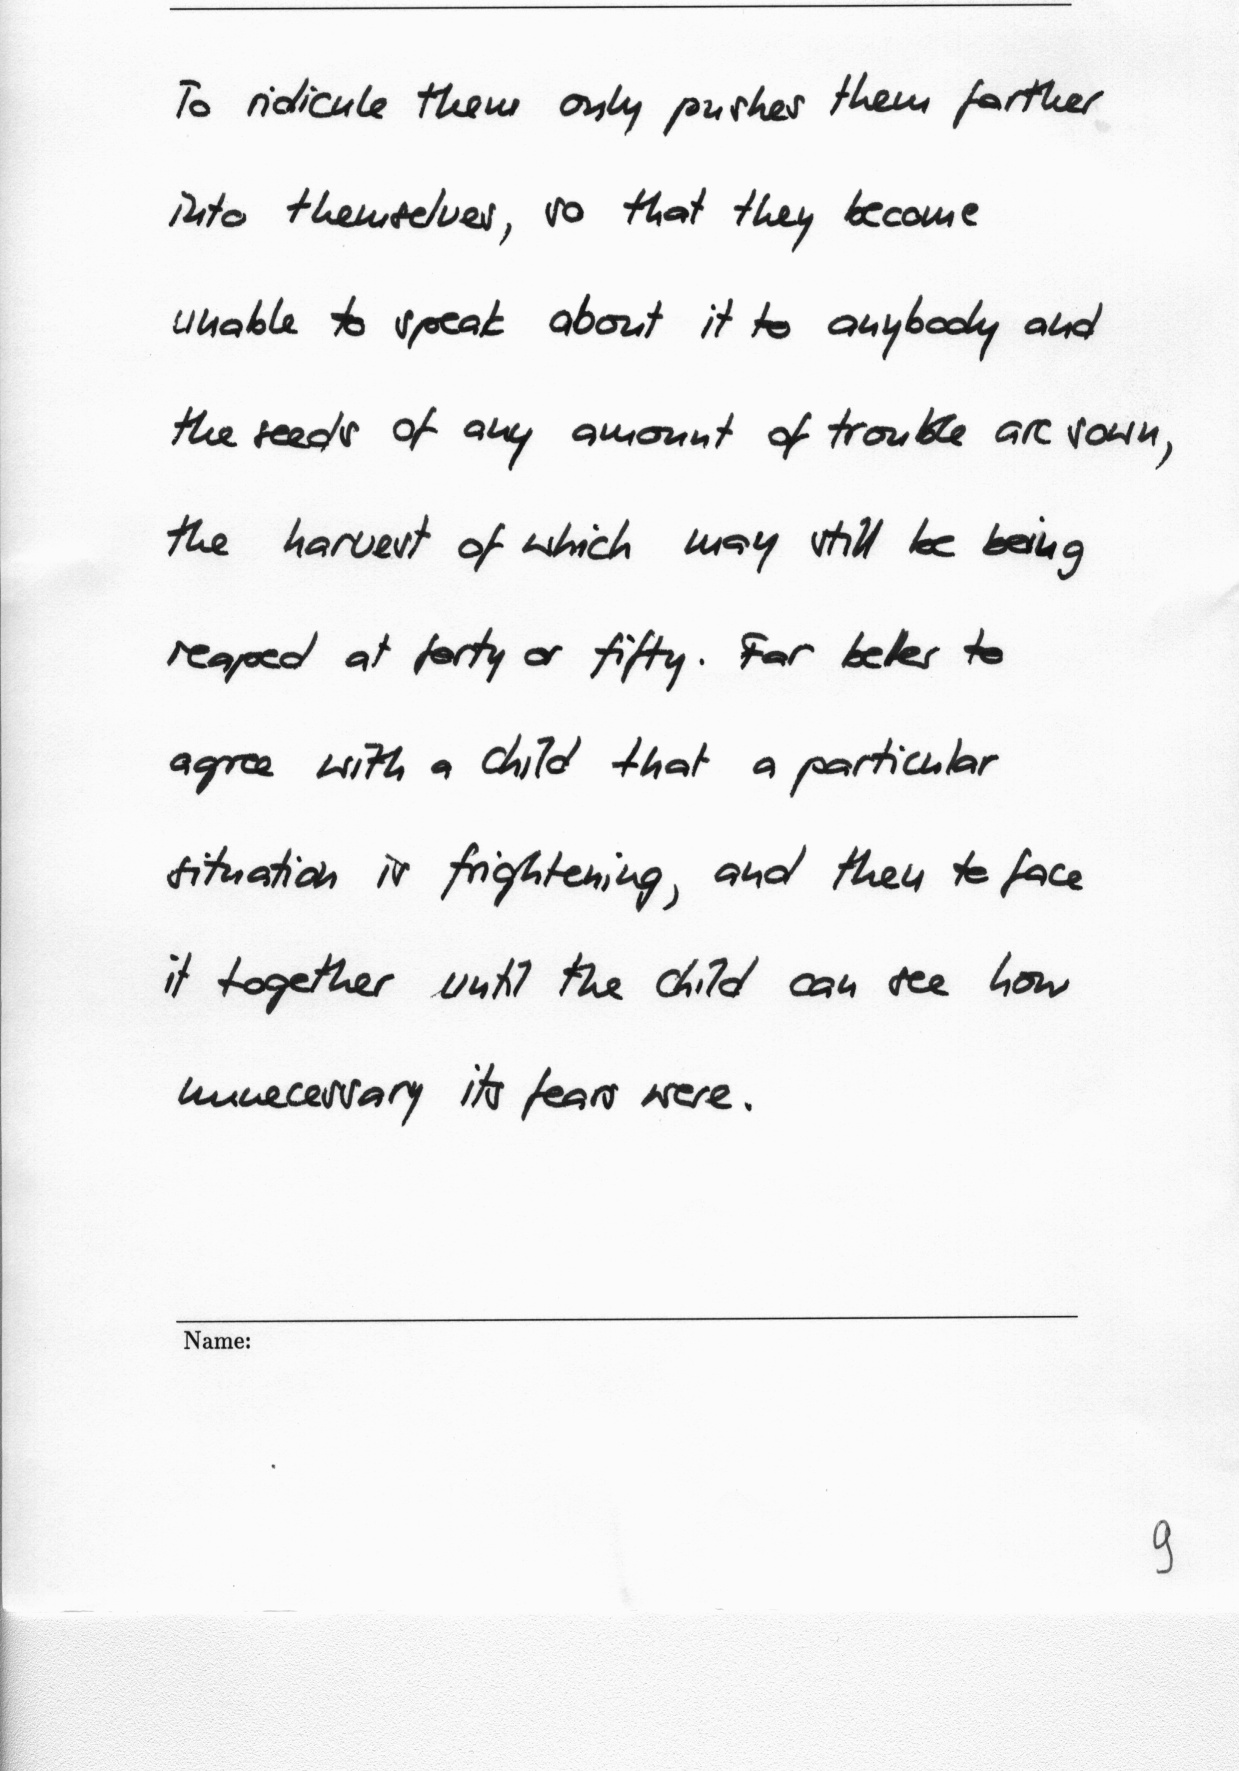 To ridicule them only pushes them farther
into themselves, so that they become
unable to speak about it to anybody and
the seeds of any amount of trouble are sown,
the harvest of which may still be being
reaped at forty or fifty. Far better to
agree with a child that a particular
situation is frightening, and then to face
it together until the child can see how
unnecessary its fears were.
Name:
9